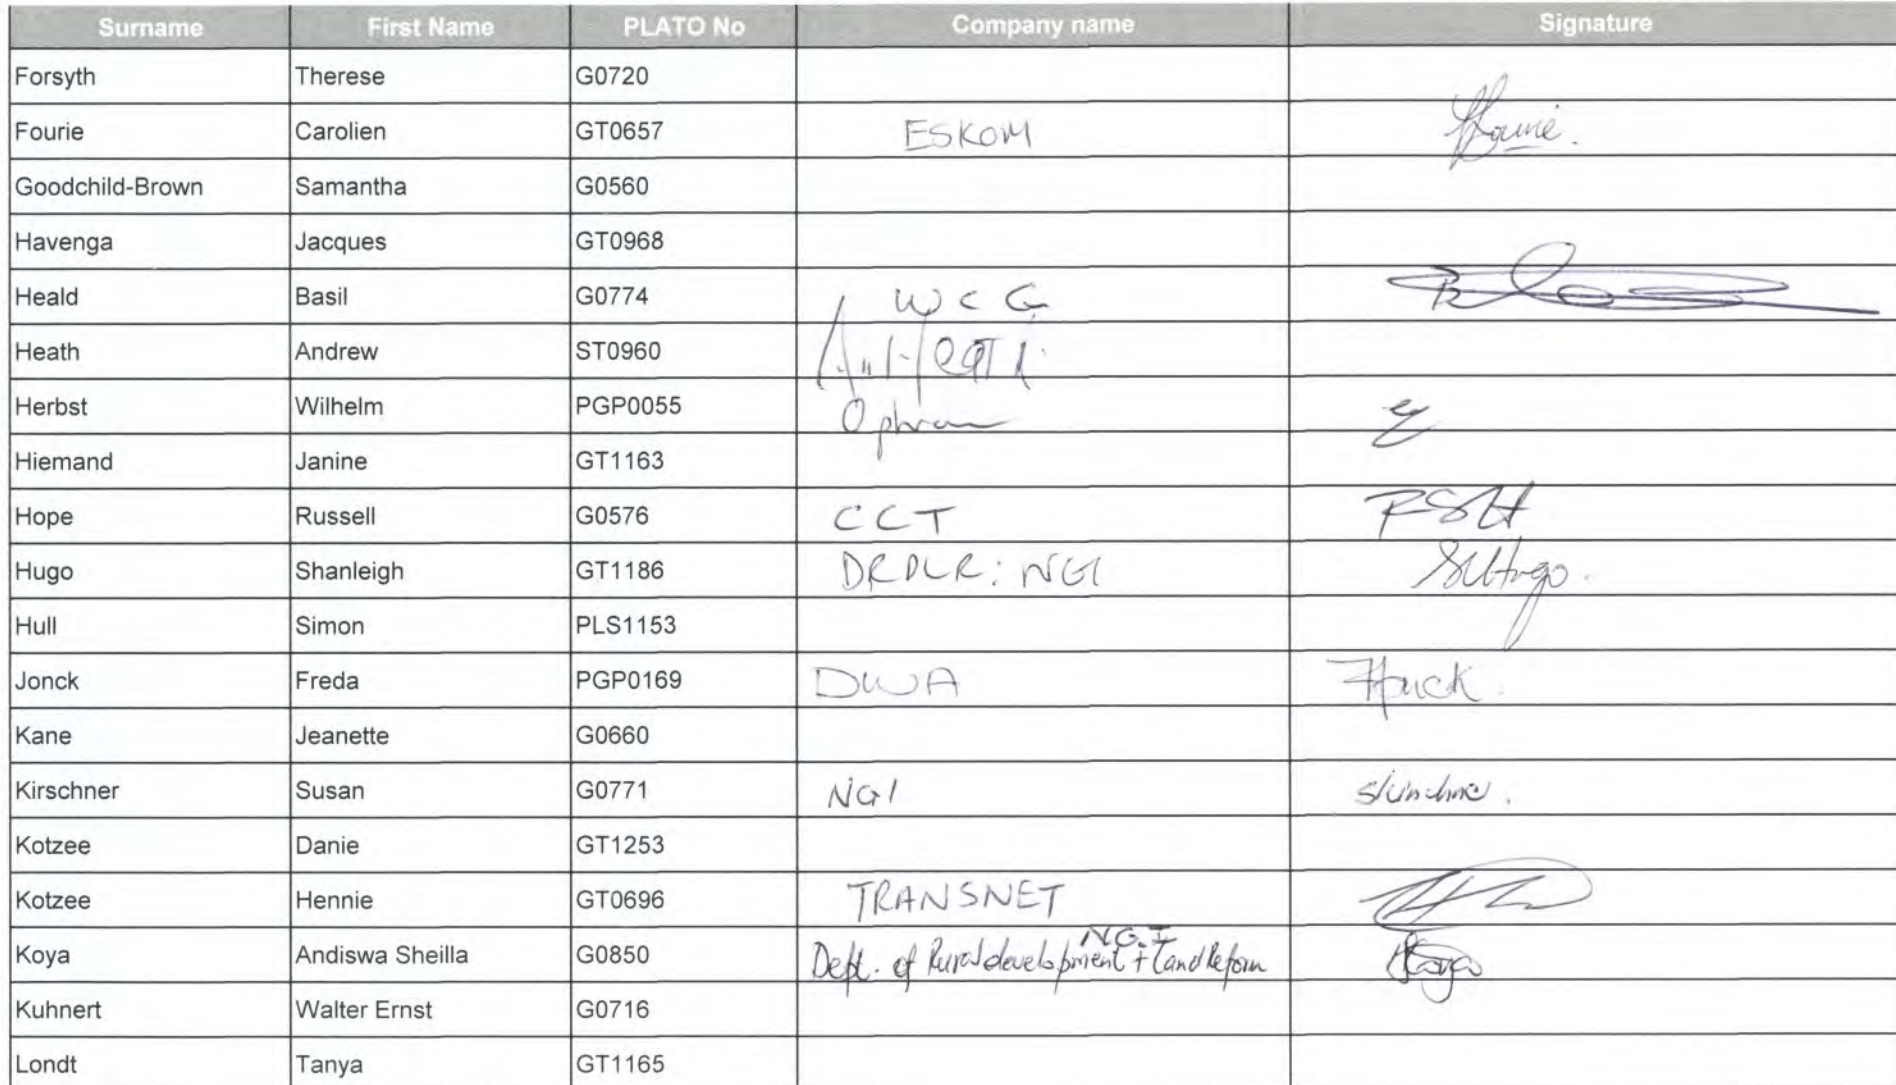 Surname First Name PLATO No Company name Signature
Forsyth Therese G0720
Fourie Carolien GT0657 ESKOM
Goodchild-Brown Samantha G0560
Havenga Jacques GT0968
Heald Basil G0774 WCG
Heath Andrew ST0960
Herbst Wilhelm PGP0055
Hiemand Janine GT1163
Hope Russell G0576 CCT RSH
Hugo Shanleigh GT1186 DRDLR: NGI SHugo.
Hull Simon PLS1153
Jonck Freda PGP0169 DWA
Kane Jeanette G0660
Kirschner Susan G0771 NGI
Kotzee Danie GT1253
Kotzee Hennie GT0696 TRANSNET
N.G.I
Koya Andiswa Sheilla G0850 Dept. of Rural development + Land Reform
Kuhnert Walter Ernst G0716
Londt Tanya GT1165